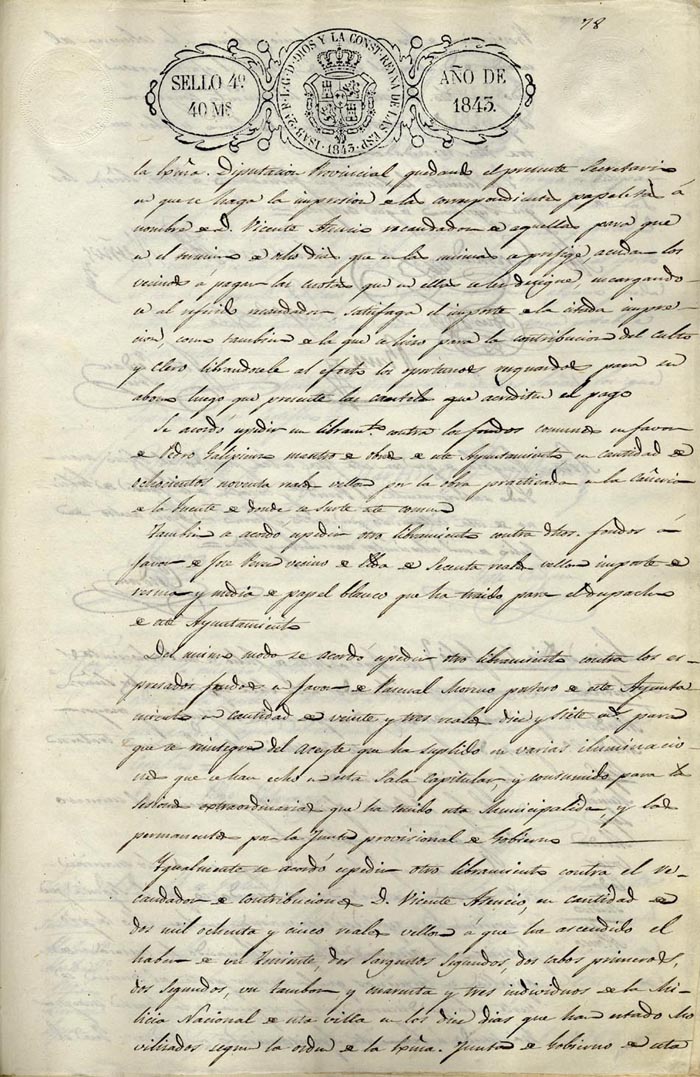 78
SELLO 4º
40 Ms
ISAB. 2ª P. L. G. D. DIOS Y LA CONST. REYNA DE LAS ESP.
1843
AÑO DE
1843.
la Exma. Diputacion Provincial, quedando el presente Secretario
en que se haga la impresion de la correspondiente papeleta á
nombre de D. Vicente Amcio recaudador de aquella para que
en el termino de ocho dias que en la misma se prefige acudan los
vecinos á pagar las cuotas que en ella se les designe, encargando
se al referido recaudador satisfaga el importe de la citada impre-
sion, como tambien de la que se hizo para la contribucion del culto
y clero librandosele al efecto los oportunos resguardos para su
abono luego que presente las cautelas que acrediten el pago
Se acordo expedir un libramto. contra los fondos comunes en favor
de Pedro maestro de obras de este Ayuntamiento en cantidad de
ochocientos noventa reales vellon por la obra practicada en la cañeria
de la fuente de donde se surte este comun
Tambien se acordó expedir otro libramiento contra dhos. fondos á
favor de Jose vecino de Elda de Secenta reales vellon importe de
resma y media de papel blanco que ha traido para el despacho
de este Ayuntamiento
Del mismo modo se acordo expedir otro libramiento contra los es-
presados fondos a favor de Pascual Moreno portero de este Ayunta
miento en cantidad de veinte y tres reales diez y siete ms. para
que se reintegre del aceyte que ha suplido en varias iluminacio
nes que se han echo en esta Sala capitular, y consumido para las
sesiones extraordinarias que ha tenido esta Municipalidad, y las
permanentes por la Junta provisional de Gobierno
Igualmente se acordó expedir otro libramiento contra el re-
caudador de contribuciones D. Vicente Amcio, en cantidad de
dos mil ochenta y cinco reales vellon á que ha ascendido el
haber de un Teniente, dos Sargentos Segundos, dos cabos primeros,
dos segundos, un tambor y cuarenta y tres individuos de la Mi-
licia Nacional de esta villa en los diez dias que han estado Mo
vilizados segun la orden de la Exma. Junta de Gobierno de esta